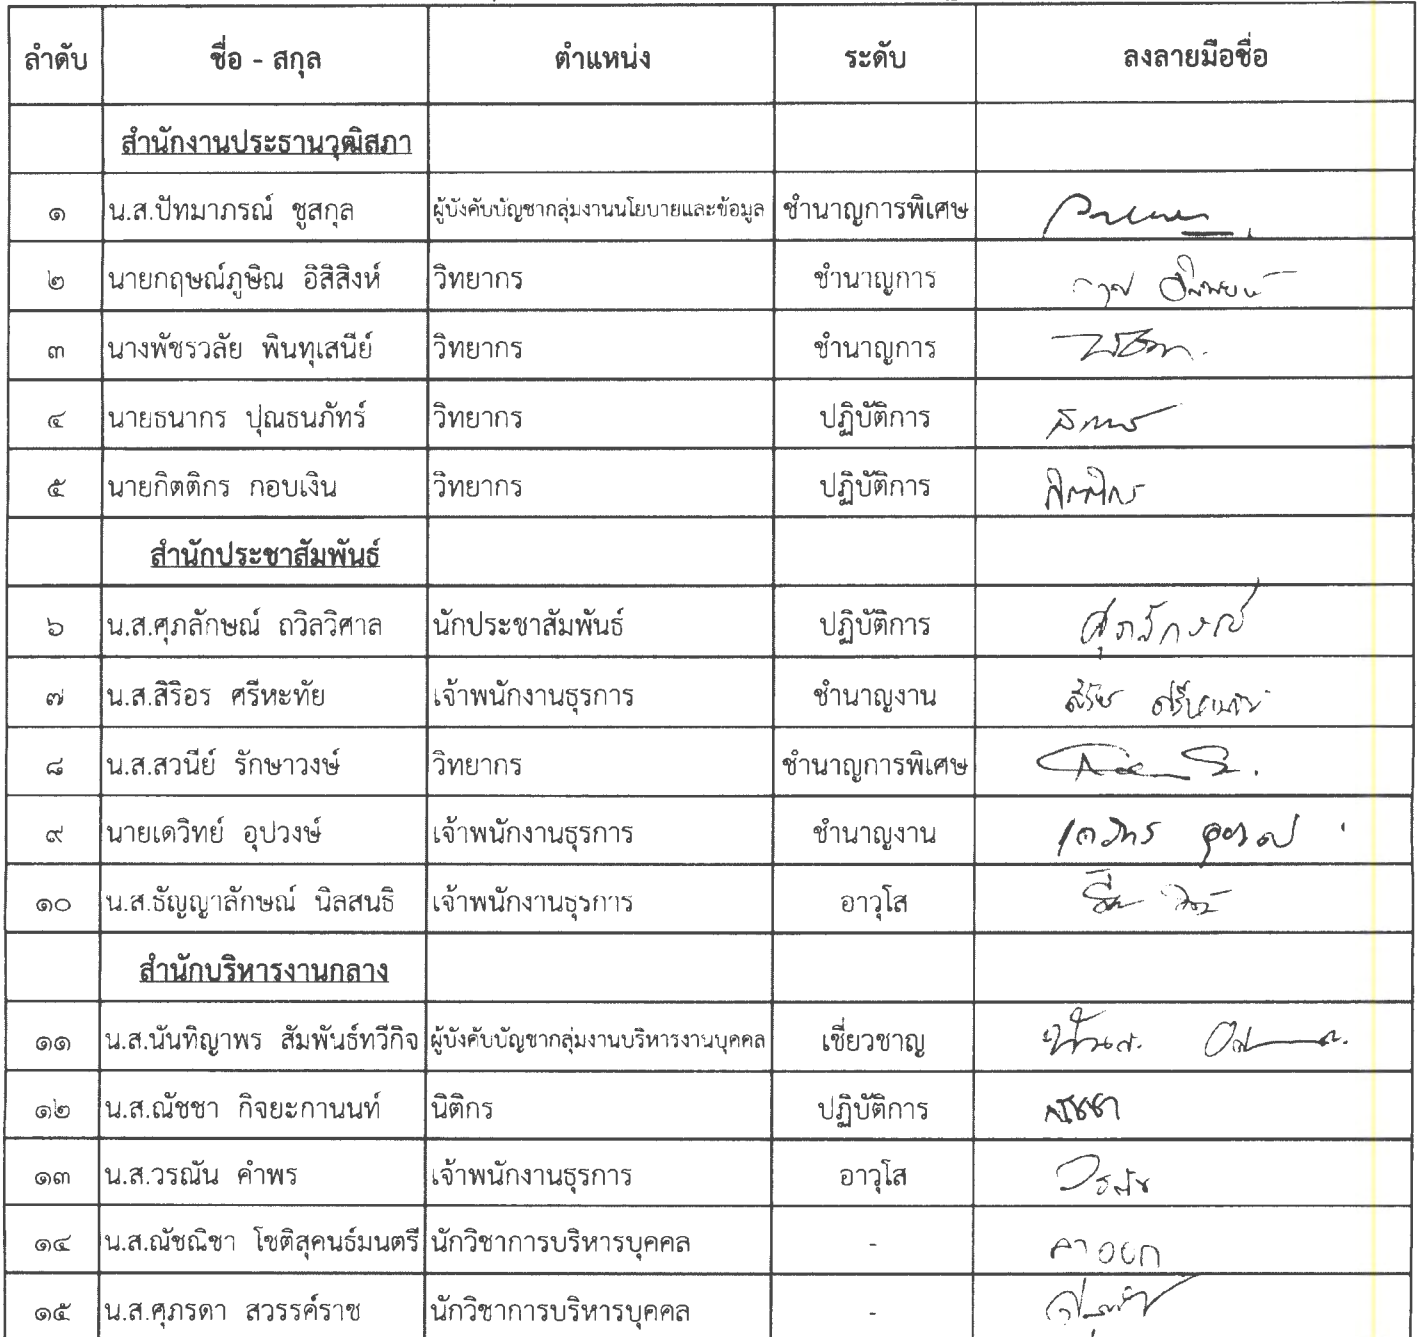 ลำดับ ชื่อ - สกุล ตำแหน่ง ระดับ ลงลายมือชื่อ
สำนักงานประธานวุฒิสภา
๑ น.ส.ปัทมาภรณ์ ชูสกุล ผู้บังคับบัญชากลุ่มงานนโยบายและข้อมูล ชำนาญการพิเศษ
๒ นายกฤษณ์ภูษิณ อิสิสิงห์ วิทยากร ชำนาญการ
๓ นางพัชรวลัย พินทุเสนีย์ วิทยากร ชำนาญการ
๔ นายธนากร ปุณธนภัทร์ วิทยากร ปฏิบัติการ
๕ นายกิตติกร กอบเงิน วิทยากร ปฏิบัติการ กิตติกร
สำนักประชาสัมพันธ์
๖ น.ส.ศุภลักษณ์ ถวิลวิศาล นักประชาสัมพันธ์ ปฏิบัติการ ศุภลักษณ์
๗ น.ส.สิริอร ศรีหะทัย เจ้าพนักงานธุรการ ชำนาญงาน สิริอร ศรีหะทัย
๘ น.ส.สวนีย์ รักษาวงษ์ วิทยากร ชำนาญการพิเศษ
๙ นายเดวิทย์ อุปวงษ์ เจ้าพนักงานธุรการ ชำนาญงาน
๑๐ น.ส.ธัญญาลักษณ์ นิลสนธิ เจ้าพนักงานธุรการ อาวุโส
สำนักบริหารงานกลาง
๑๑ น.ส.นันทิญาพร สัมพันธ์ทวีกิจ ผู้บังคับบัญชากลุ่มงานบริหารงานบุคคล เชี่ยวชาญ
๑๒ น.ส.ณัชชา กิจยะกานนท์ นิติกร ปฏิบัติการ ณัชชา
๑๓ น.ส.วรณัน คำพร เจ้าพนักงานธุรการ อาวุโส วรณัน
๑๔ น.ส.ณัชณิชา โชติสุคนธ์มนตรี นักวิชาการบริหารบุคคล - ลาออก
๑๕ น.ส.ศุภรดา สวรรค์ราช นักวิชาการบริหารบุคคล -